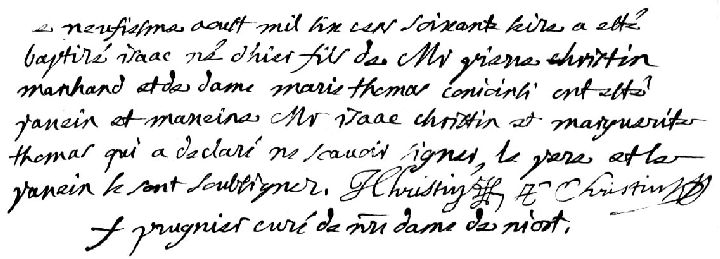 e neufiesme aoust mil six cens soixante seize a esté
baptizé isaac né d'hier fils de Mr pierre christin
marchand et de dame marie thomas conioints ont esté
parain et maraine Mr isaac christin et marguerite
thomas qui a declaré ne scauoir signer, le pere et le
parain se sont soubsigner. Christin Christin
f prugnier curé de nre dame de niort.